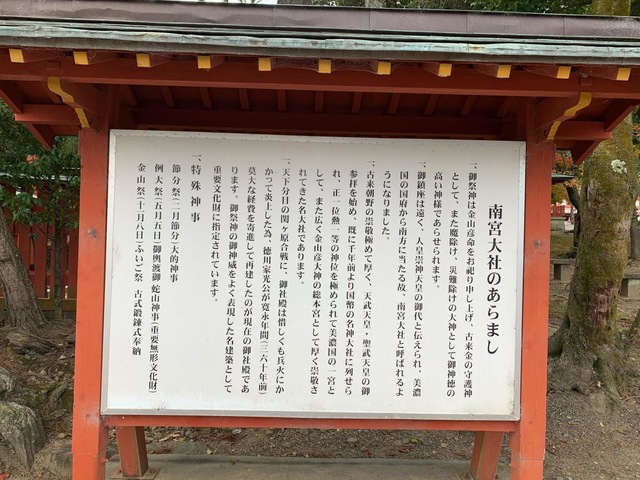 南宮大社のあらまし
一、御祭神は金山彦命をお祀り申し上げ、古来金の守護神
として、また魔除け、災難除けの大神として御神徳の
高い神様であらせられます。
一、御鎮座は遠く、人皇崇神天皇の御代と伝えられ、美濃
国の国府から南方に当たる故、南宮大社と呼ばれるよ
うになりました。
一、古来朝野の崇敬極めて厚く、天武天皇・聖武天皇の御
参拝を始め、既に千年前より国幣の名神大社に列せら
れ、正一位勲一等の神位を極められて美濃国の一宮と
して、また広く金山彦大神の総本宮として厚く崇敬さ
れてきた名大社であります。
一、天下分目の関ヶ原合戦に、御社殿は惜しくも兵火にか
かって炎上した為、徳川家光公が寛永年間(三六十年前)
莫大な経費を寄進して再建したのが現在の御社殿であ
ります。御祭神の御神威をよく表現した名建築として
重要文化財に指定されています。
一、特殊神事
節分祭(二月節分)大的神事
例大祭(五月五日)御輿渡御 蛇山神事(重要無形文化財)
金山祭(十一月八日)ふいご祭 古式鍛錬式奉納